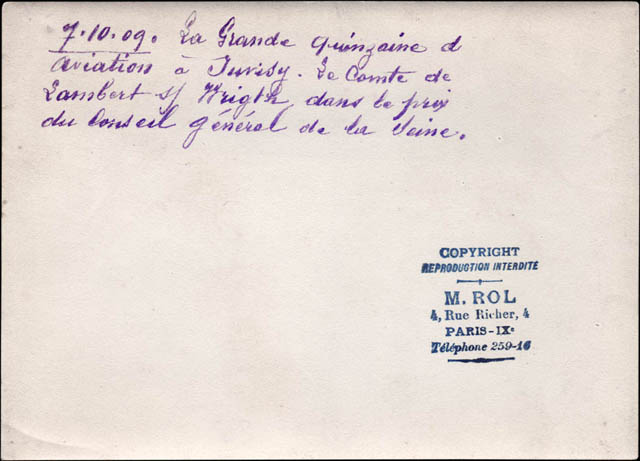 7.10.09. La Grande quinzaine d
aviation à Juvisy. Le Comte de
Lambert s/ Wrigth, dans le prix
du Conseil général de la Seine.
COPYRIGHT
REPRODUCTION INTERDITE
M. ROL
4, Rue Richer, 4
PARIS-IXe
Téléphone 259-16